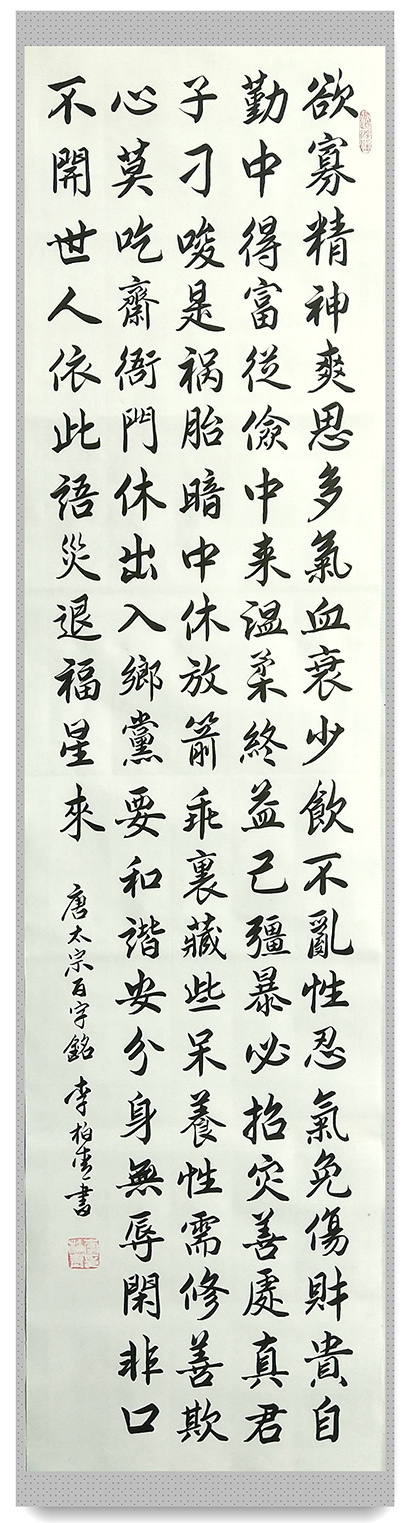 欲寡精神爽思多氣血衰少飲不亂性忍氣免傷財貴自
勤中得富從儉中来温柔終益己彊暴必招灾善處真君
子刁唆是祸胎暗中休放箭乖裏藏些呆養性需修善欺
心莫吃齋衙門休出入鄉黨要和諧安分身無辱閑非口
不開世人依此語災退福星來
唐太宗百字銘 李柏青書